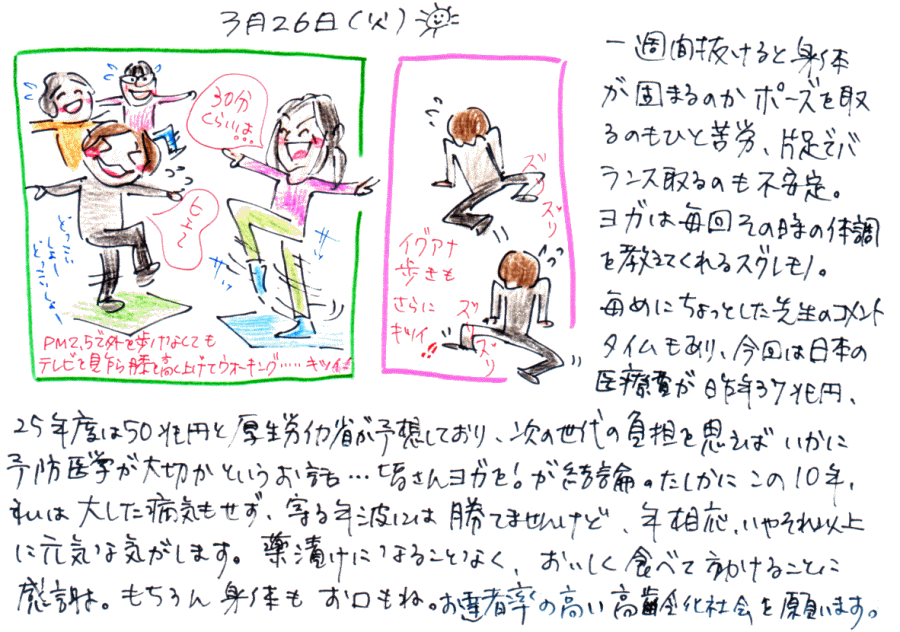 3月26日(火)
30分
くらいは‥
ヒェ〜
どっこい
しょー
どっこいしょー
PM2.5で外を歩けなくても
テレビを見ながら膝を高く上げてウォーキング……キツイ
ズリ
ズリ
イグアナ
歩きも
さらに
キツイ
ズリ
ズリ
一週間抜けると身体
が固まるのかポーズを取
るのもひと苦労、片足でバ
ランス取るのも不安定。
ヨガは毎回その時の体調
を教えてくれるスグレモノ。
毎めにちょっとした先生のコメント
タイムもあり、今回は日本の
医療費が昨年37兆円、
25年度は50兆円と厚生労働省が予想しており、次の世代の負担を思えばいかに
予防医学が大切かというお話…皆さんヨガを!が結論。たしかにこの10年、
私は大した病気もせず、寄る年波には勝てませんけど、年相応、いやそれ以上
に元気な気がします。薬漬けになることなく、おいしく食べて動けることに
感謝。もちろん身体もお口もね。お達者率の高い高齢化社会を願います。